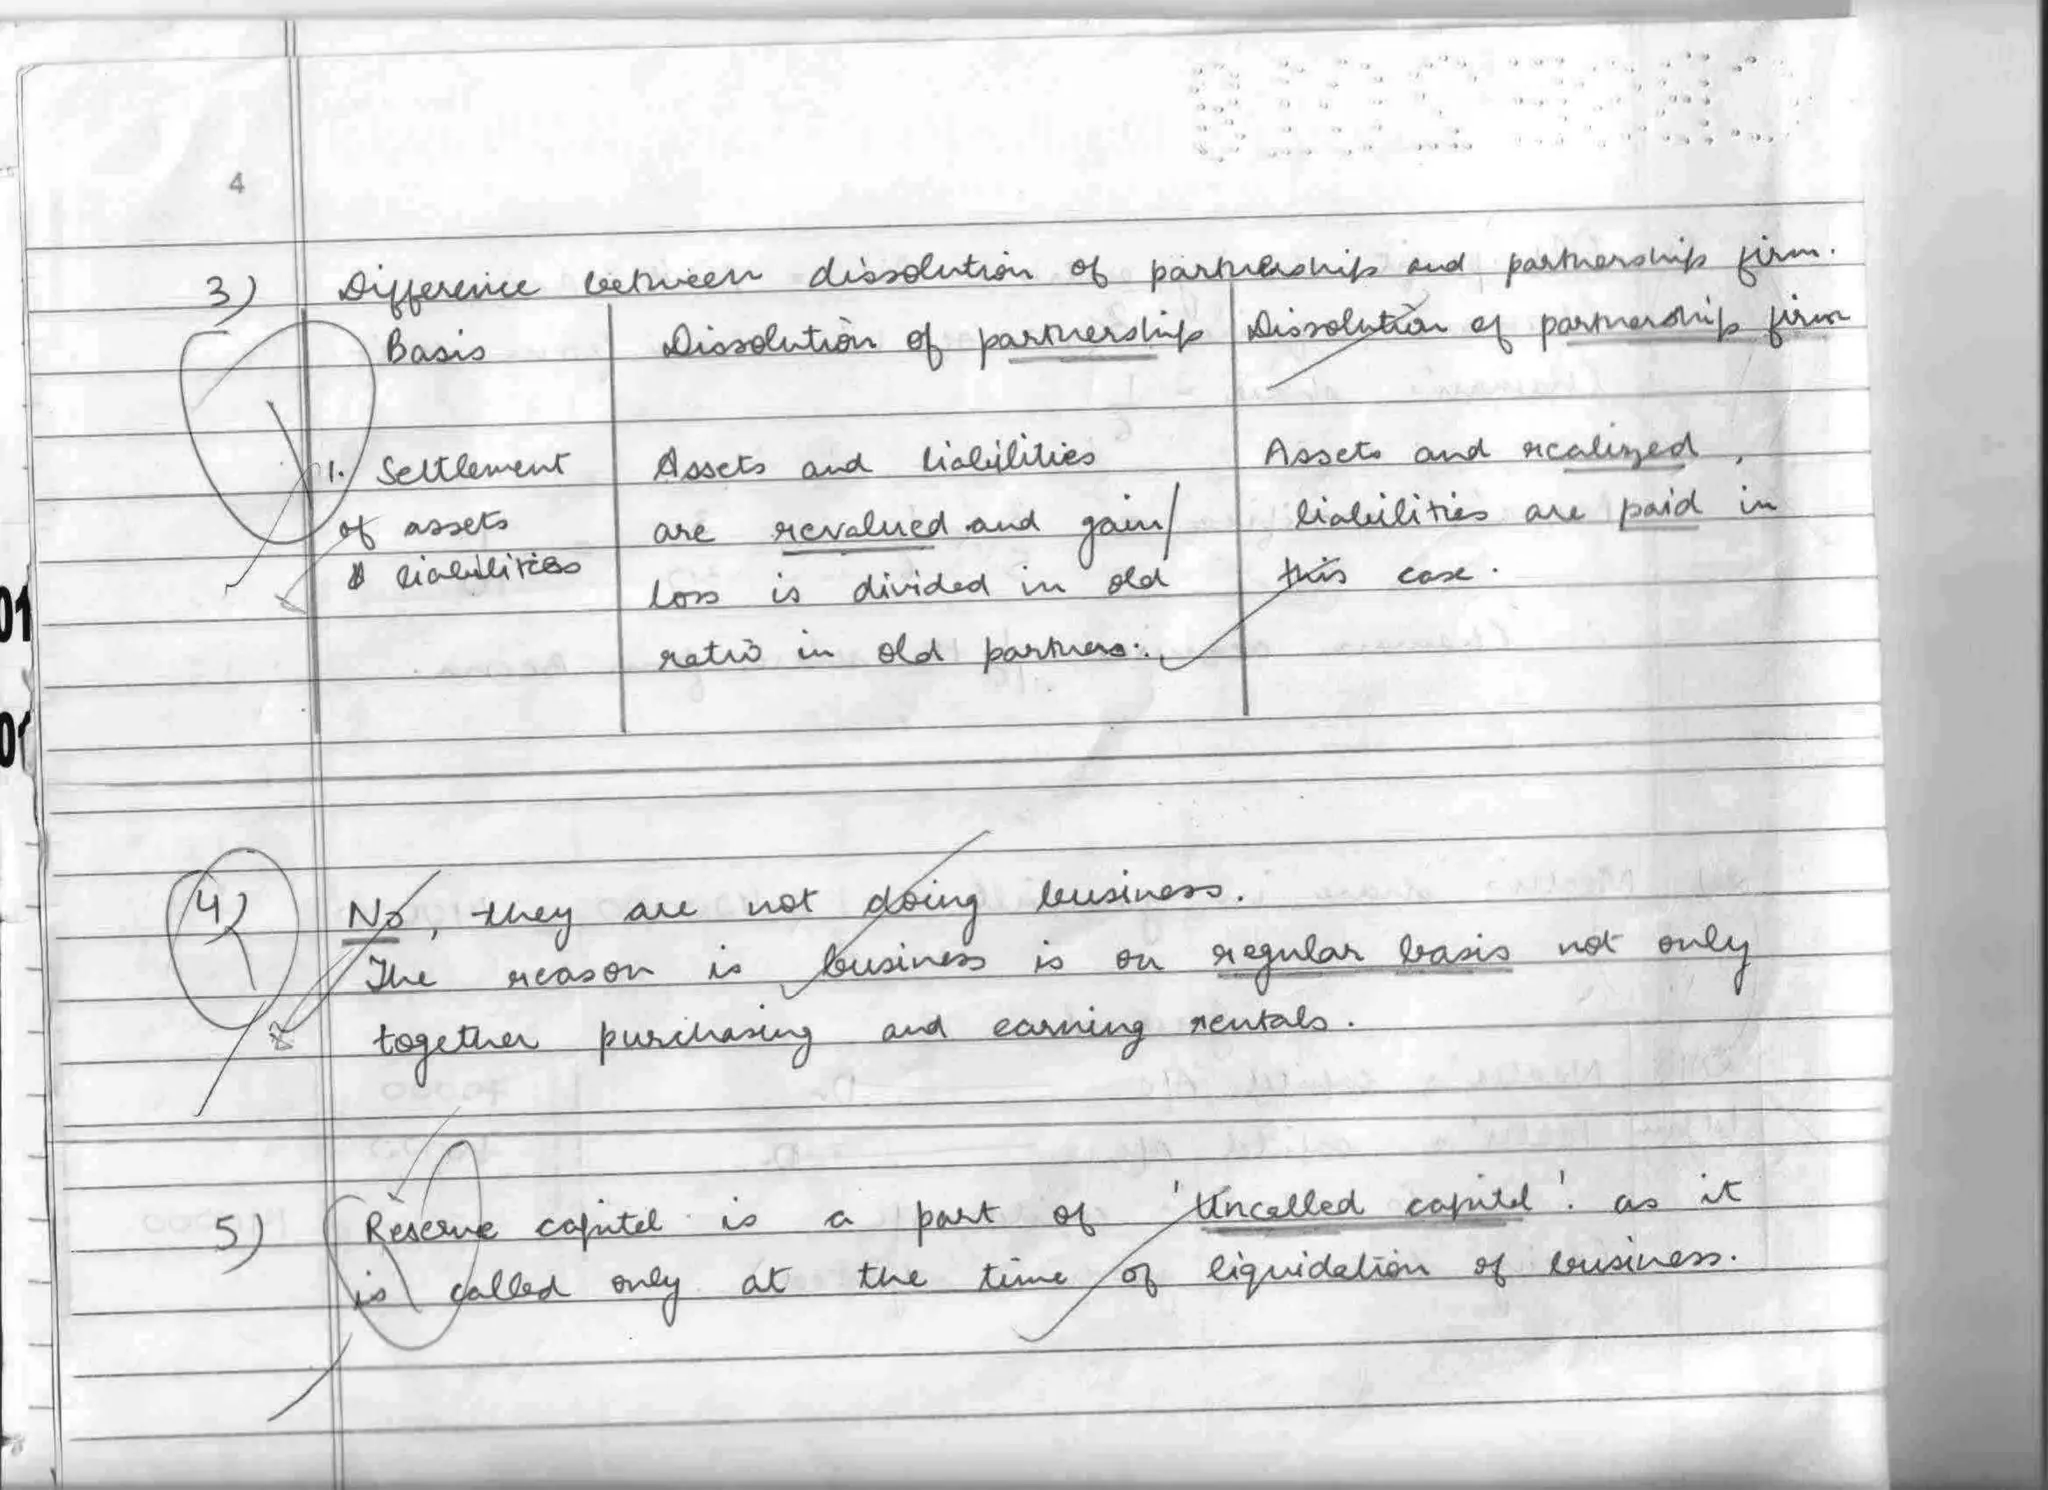 CBSE2018
4
3) Difference between dissolution of partnership and partnership firm.
Basis | Dissolution of partnership | Dissolution of partnership firm
1. Settlement | Assets and liabilities | Assets and realized,
of assets | are revalued and gain/ | liabilities are paid in
& liabilities | loss is divided in old | this case.
ratio in old partners.
01
01
4) No, they are not doing business.
The reason is business is on regular basis not only
together purchasing and earning rentals.
5) Reserve capital is a part of 'Uncalled capital'. as it
is called only at the time of liquidation of business.